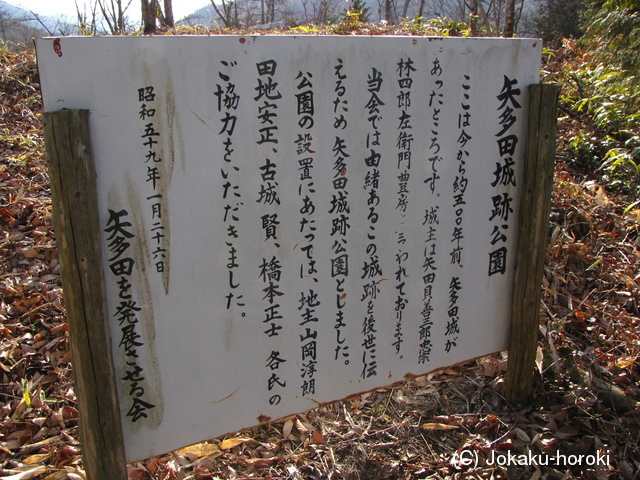 矢多田城跡公園
ここは今から約五〇〇年前、矢多田城が
あったところです。城主は矢田貝善三郎忠宗
林四郎左衛門豊房と云われております。
当会では由緒あるこの城跡を後世に伝
えるため矢多田城跡公園としました。
公園の設置にあたっては、地主山岡淳朗
田地安正、古城賢、橋本正士各氏の
ご協力をいただきました。
昭和五十九年一月二十六日
矢多田を発展させる会
(C) Jokaku-horoki